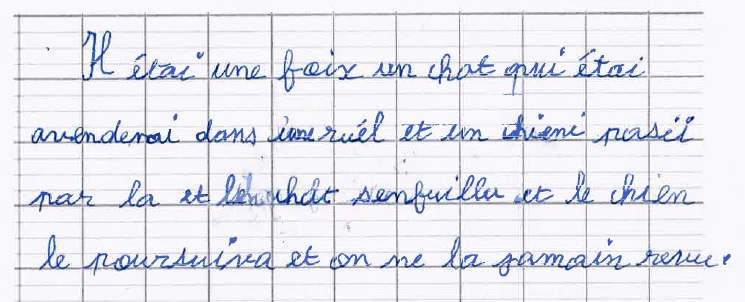 Il étai une foix un chat qui étai
avendenai dans une ruél et un chieni pasii
par la et le chat senfuilla et le chien
le poursuiva et on ne la jamain revu.